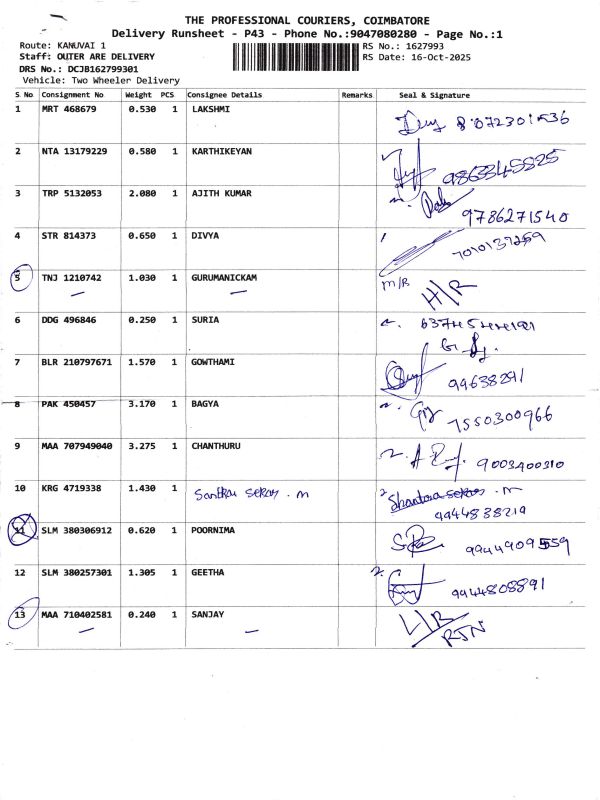 THE PROFESSIONAL COURIERS, COIMBATORE
Delivery Runsheet - P43 - Phone No.:9047080280 - Page No.:1
Route: KANUVAI 1
RS No.: 1627993
Staff: OUTER ARE DELIVERY
RS Date: 16-Oct-2025
DRS No.: DCJB162799301
Vehicle: Two Wheeler Delivery
S No Consignment No Weight PCS Consignee Details Remarks Seal & Signature
1 MRT 468679 0.530 1 LAKSHMI
2 NTA 13179229 0.580 1 KARTHIKEYAN
9863345825
3 TRP 5132053 2.080 1 AJITH KUMAR
9786271540
4 STR 814373 0.650 1 DIVYA
7010137259
5 TNJ 1210742 1.030 1 GURUMANICKAM M/R H/R
6 DDG 496846 0.250 1 SURIA
7 BLR 210797671 1.570 1 GOWTHAMI
99638291
8 PAK 450457 3.170 1 BAGYA
7550300966
9 MAA 707949040 3.275 1 CHANTHURU
9003400310
10 KRG 4719338 1.430 1
9944838219
11 SLM 380306912 0.620 1 POORNIMA
9944909559
12 SLM 380257301 1.305 1 GEETHA
9944808891
13 MAA 710402581 0.240 1 SANJAY L/R
RTN